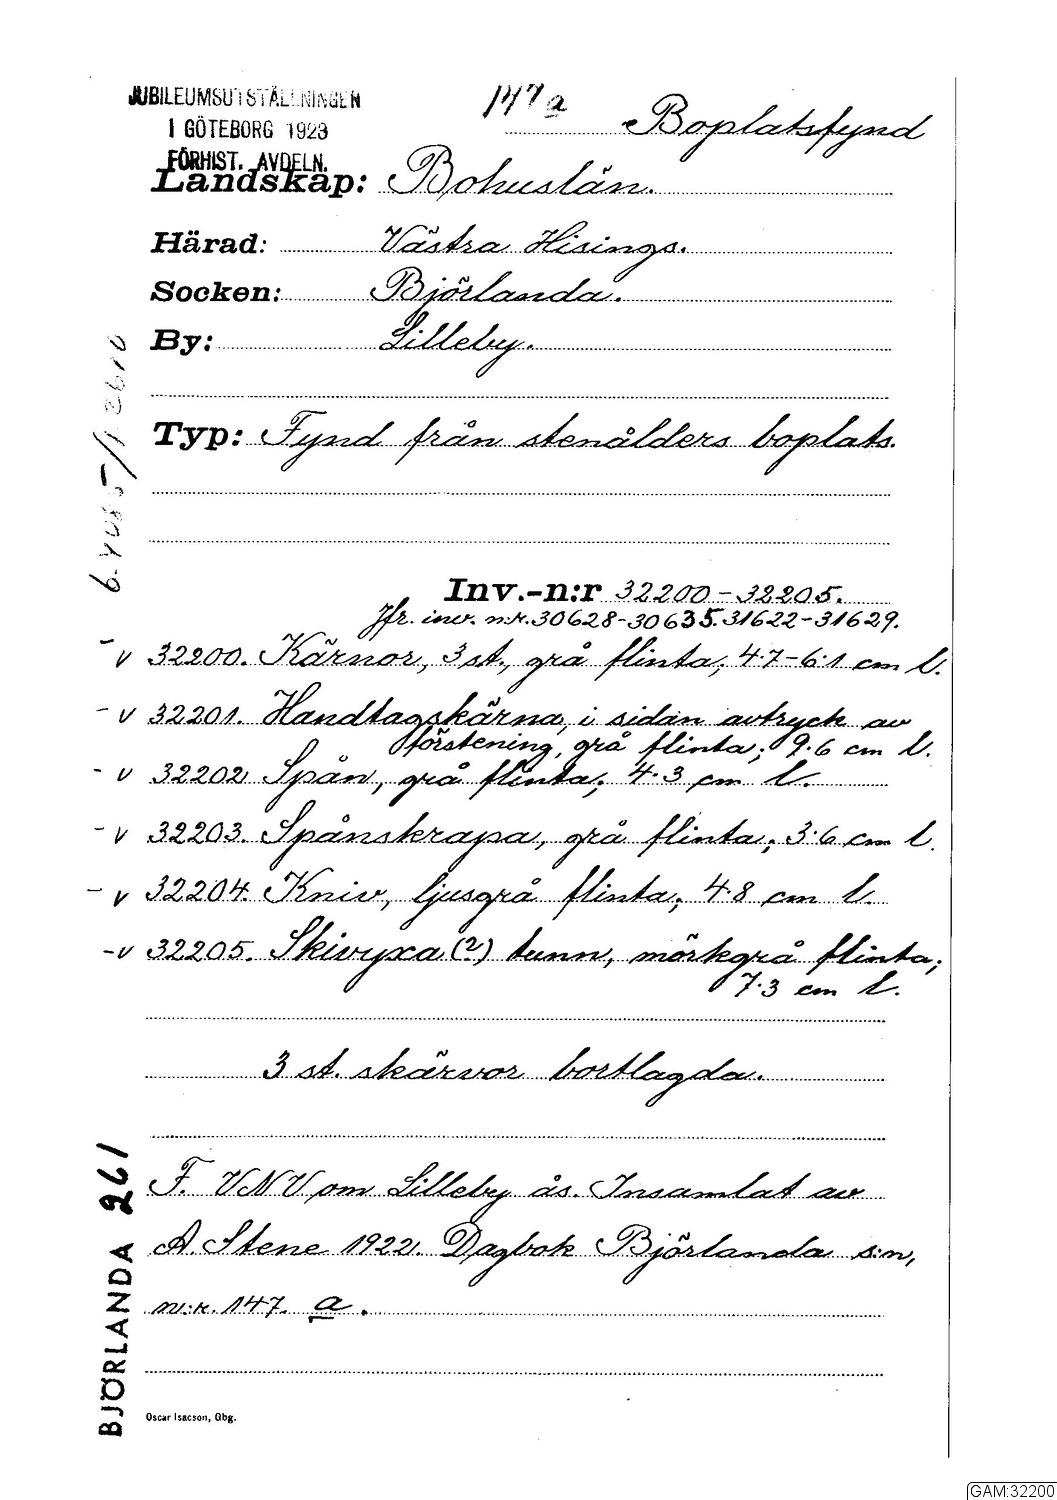 JUBILEUMSUTSTÄLLNINGEN
I GÖTEBORG 1923
FÖRHIST. AVDELN.
147 a Boplatsfynd
Landskap: Bohuslän.
Härad: Västra Hisings.
Socken: Björlanda.
By: Lilleby.
Typ: Fynd från stenålders boplats.
Inv.-n:r 32200-32205.
Jfr. inv. n:r. 30628-30635. 31622-31629.
- v 32200. Kärnor, 3 st., grå flinta; 4·7-6·1 cm l.
- v 32201. Handtagskärna, i sidan avtryck av
förstening, grå flinta; 9·6 cm l.
- v 32202 Spån, grå flinta; 4·3 cm l.
- v 32203. Spånskrapa, grå flinta; 3·6 cm l.
- v 32204. Kniv, ljusgrå flinta; 4·8 cm l.
- v 32205. Skivyxa (?) tunn, mörkgrå flinta;
7·3 cm l.
3 st. skärvor bortlagda.
F. VNV om Lilleby ås. Insamlat av
A. Stene 1922. Dagbok Björlanda s:n,
n:r. 147. a.
BJÖRLANDA 261
Oscar Isacson, Gbg.
GAM:32200